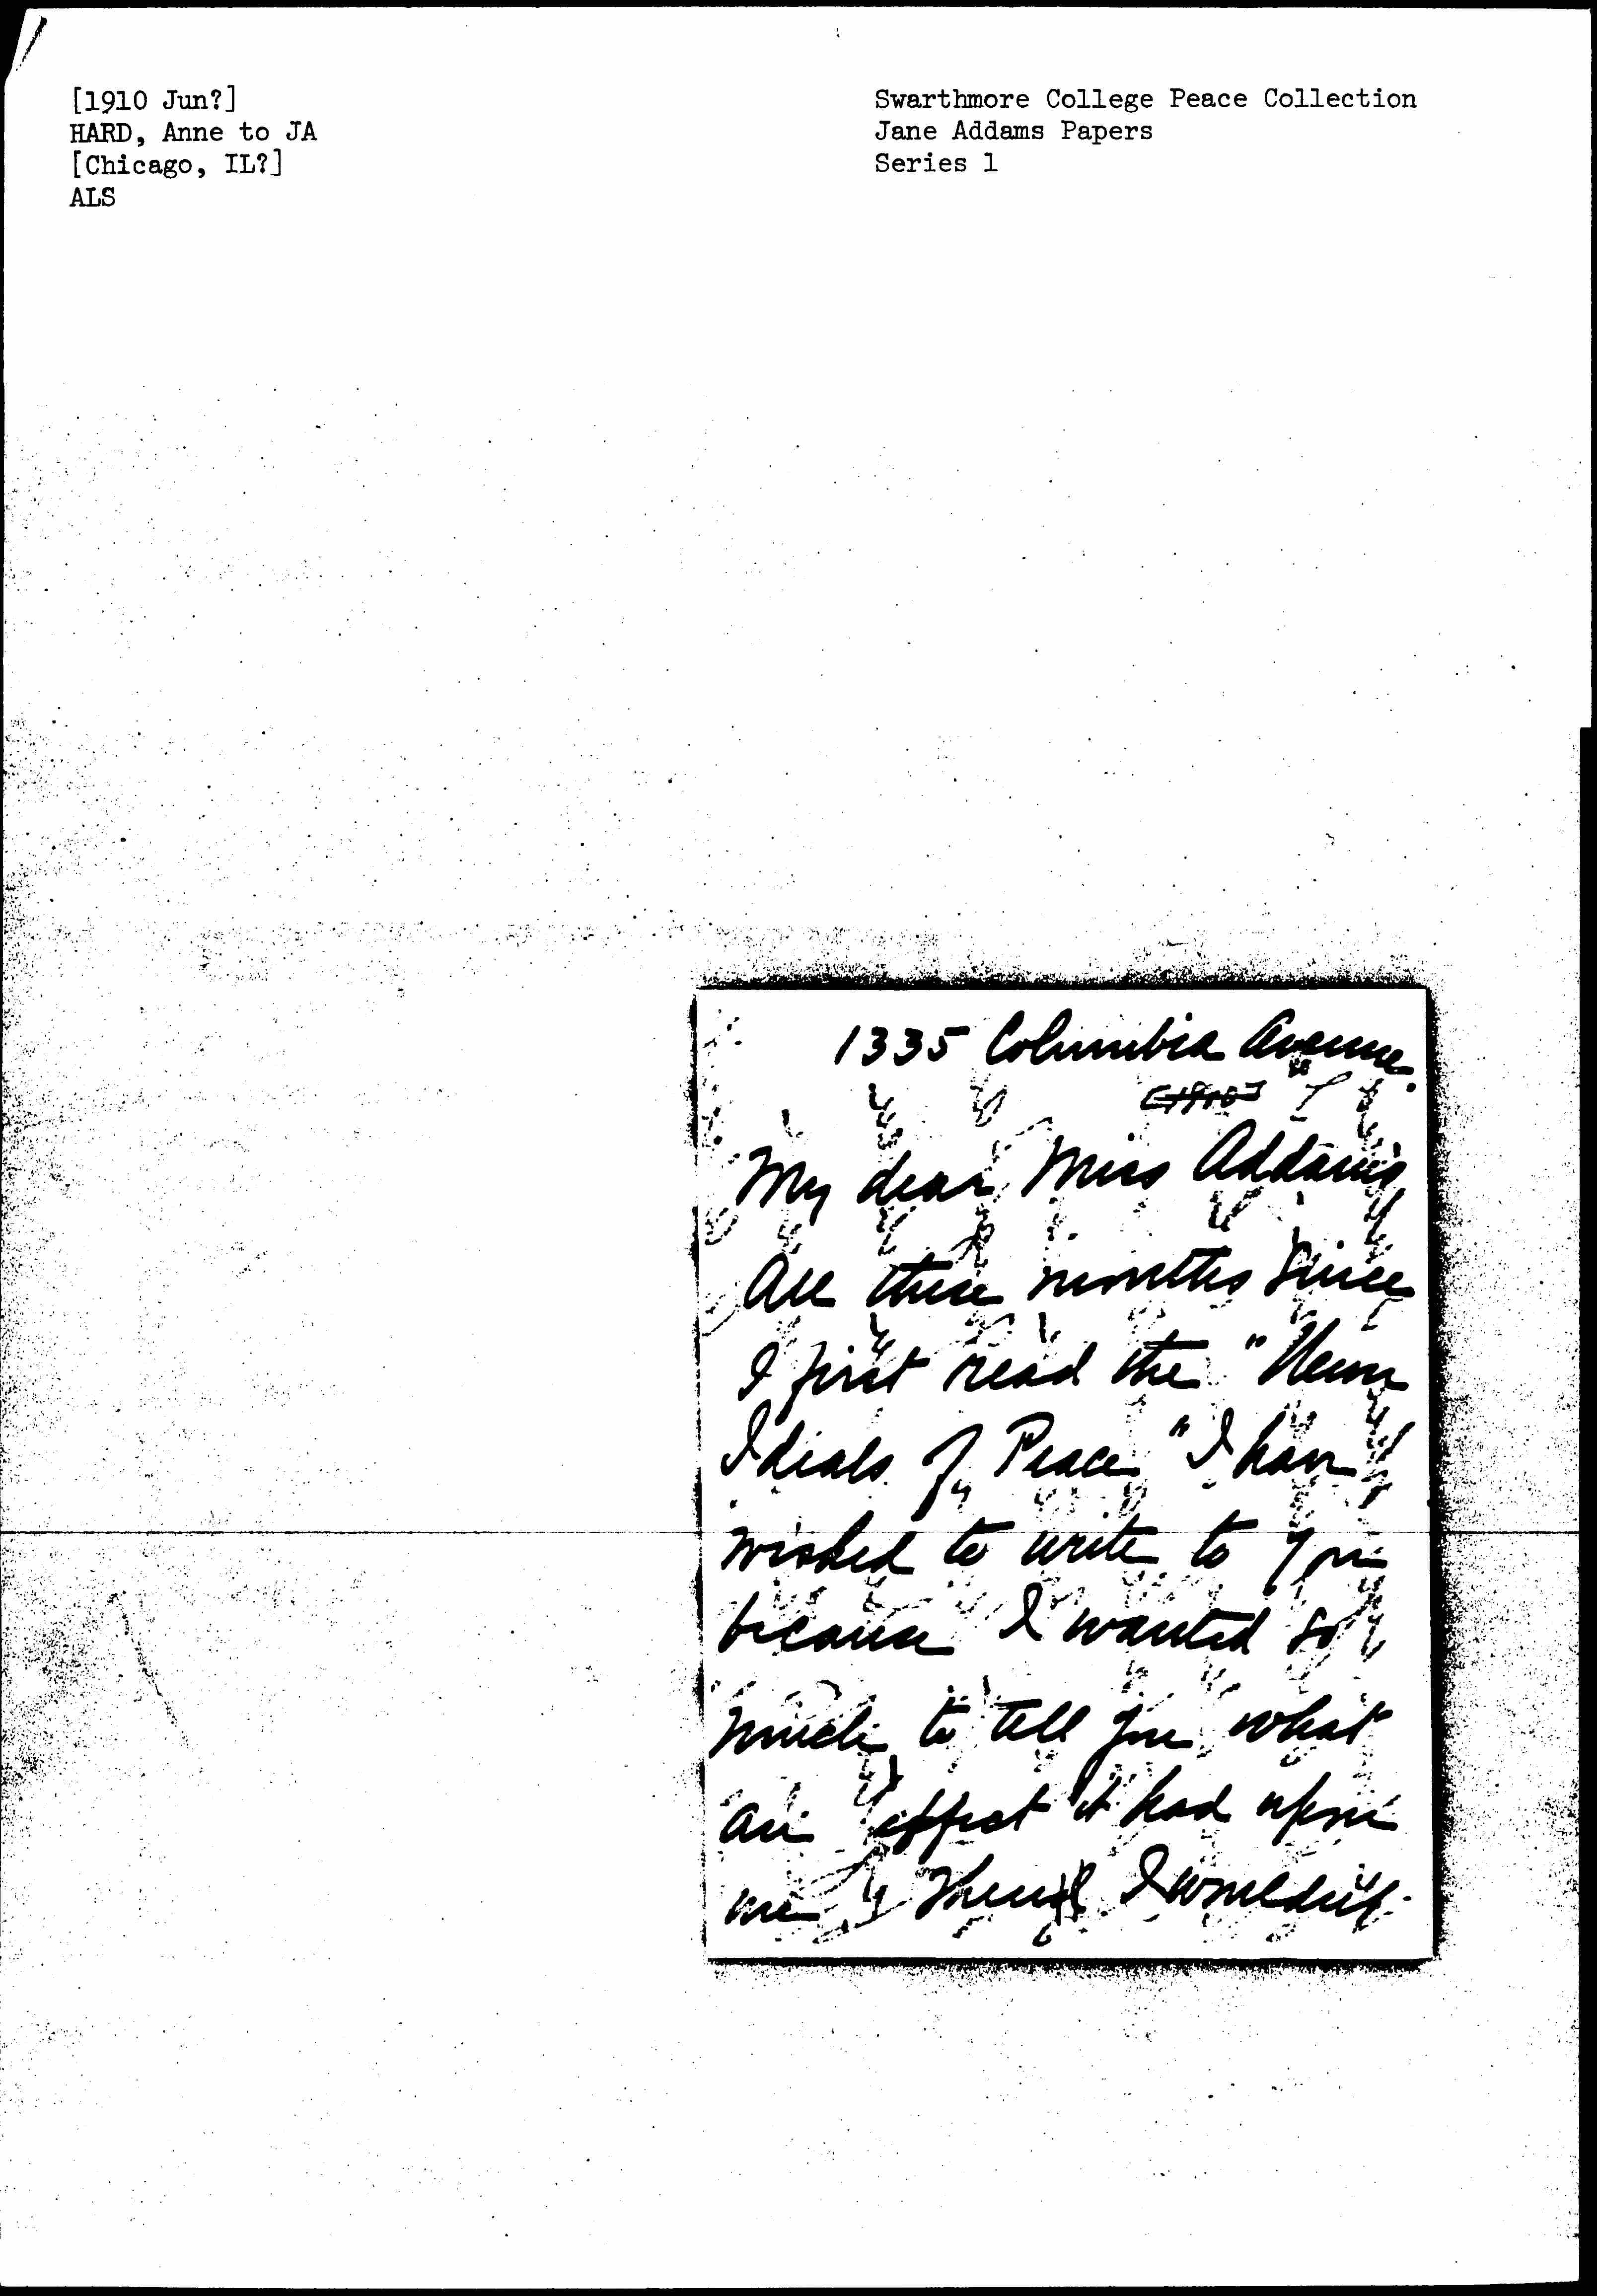 [1910 Jun?]
HARD, Anne to JA
[Chicago, IL?]
ALS
Swarthmore College Peace Collection
Jane Addams Papers
Series 1
1335 Columbia Avenue.
[1910]
My dear Miss Addams
All these months since
I first read the "Newer
Ideals of Peace" I have
wished to write to you
because I wanted so
much to tell you what
an effect it had upon
me